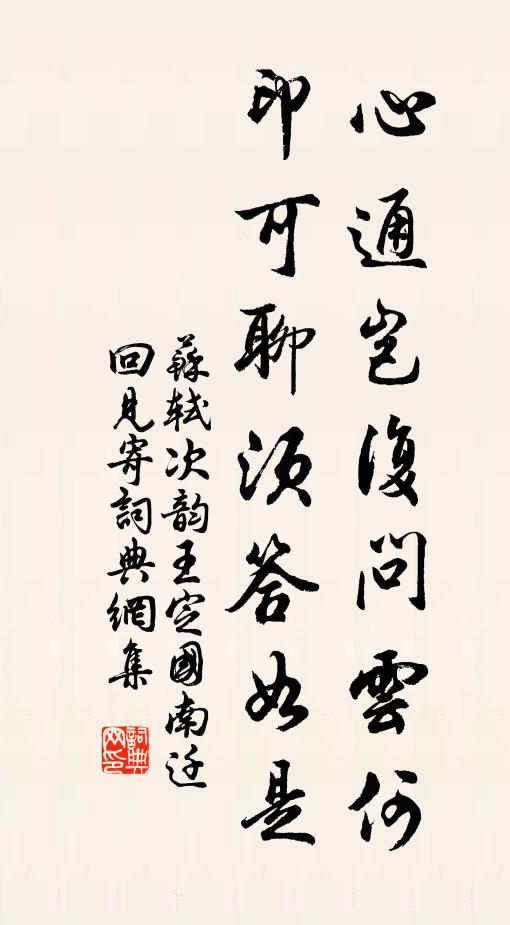 心通豈復問雲何
印可聊須答如是
蘇軾次韵王定國南迁
回見寄詞典網集
詞典网印